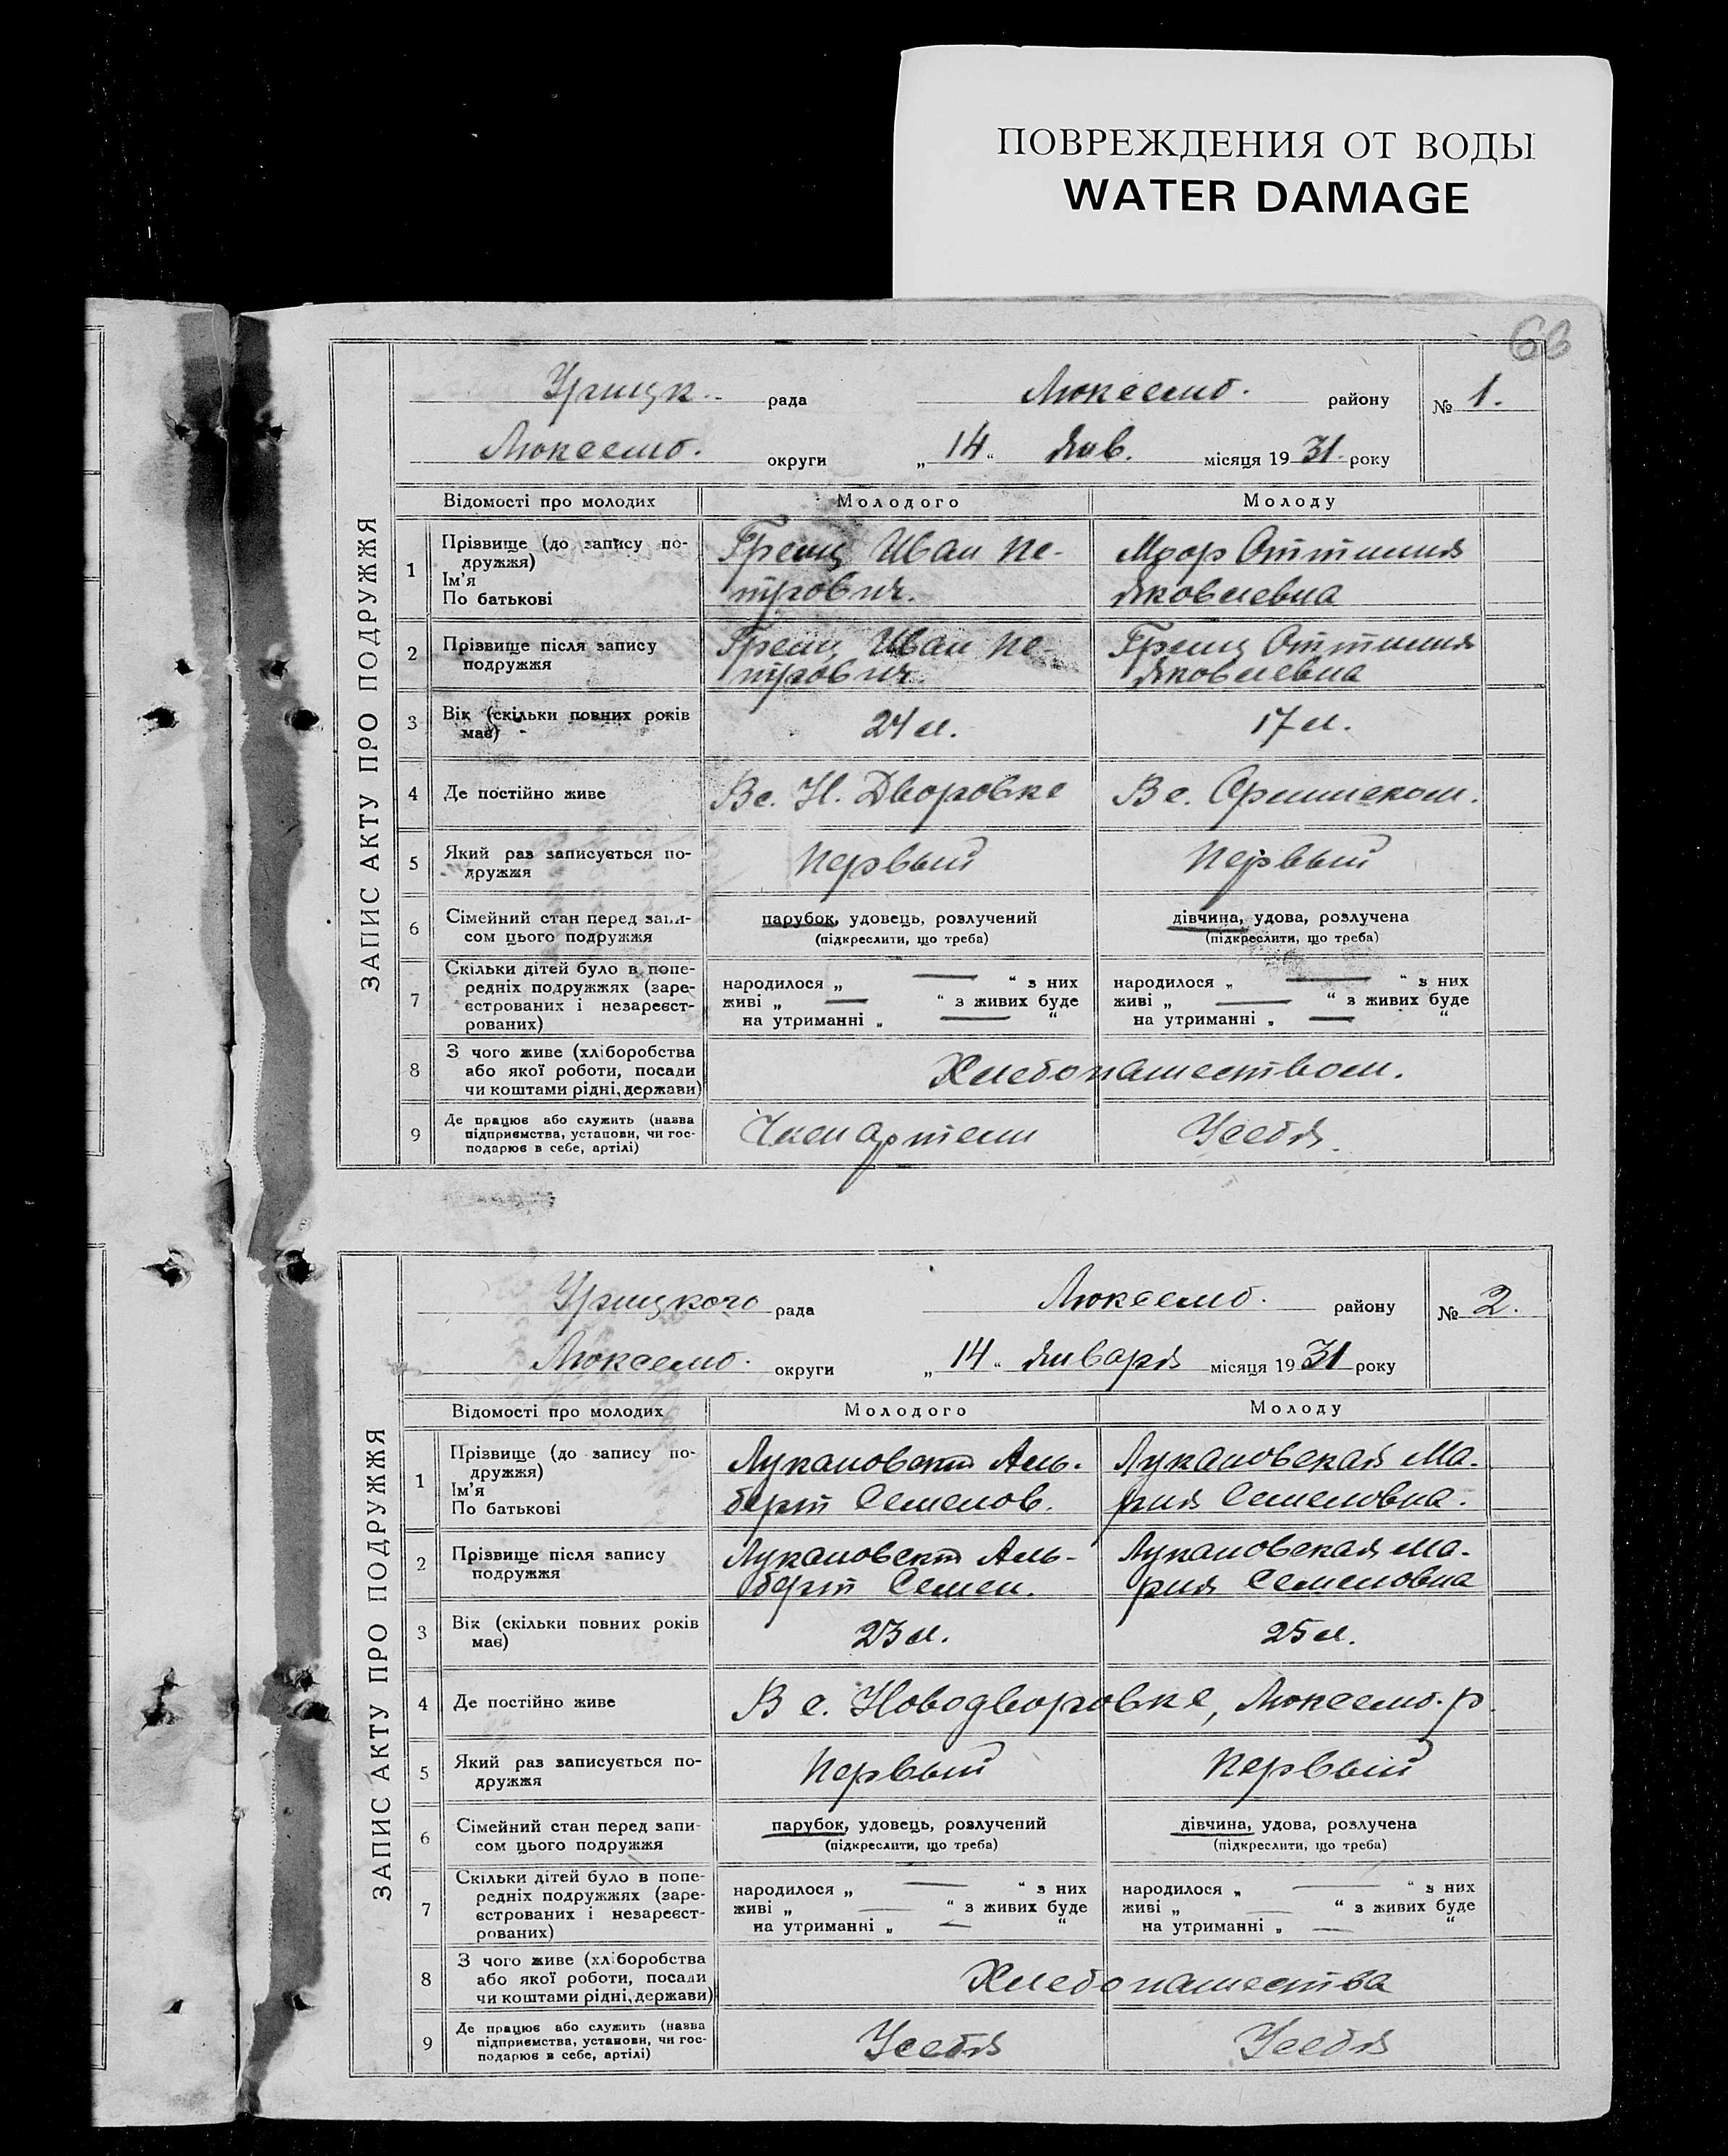 ПОВРЕЖДЕНИЯ ОТ ВОДЫ
WATER DAMAGE
63
ЗАПИС АКТУ ПРО ПОДРУЖЖЯ
Урицк. рада Люксемб. району № 1.
Люксемб. округи „ 14 “ Янв. місяця 19 31 року
Відомості про молодих Молодого Молоду
1 Прізвище (до запису по-
дружжя)
Ім'я
По батькові
Грейц Иван Пе-
трович.
Моор Оттилия
Яковлевна
2 Прізвище після запису
подружжя
Грейц Иван Пе-
трович.
Грейц Оттилия
Яковлевна
3 Вік (скільки повних років
має)
24 л. 17 л.
4 Де постійно живе В с. Н. Дворовке В с.
5 Який раз записується по-
дружжя
Первый Первый
6 Сімейний стан перед запи-
сом цього подружжя
парубок, удовець, розлучений
(підкреслити, що треба)
дівчина, удова, розлучена
(підкреслити, що треба)
7 Скільки дітей було в попе-
редніх подружжях (заре-
єстрованих і незареєст-
рованих)
народилося „ — “ з них
живі „ — “ з живих буде
на утриманні „ — “
народилося „ — “ з них
живі „ — “ з живих буде
на утриманні „ — “
8 З чого живе (хліборобства
або якої роботи, посади
чи коштами рідні, держави)
Хлебопашеством.
9 Де працює або служить (назва
підприємства, установи, чи гос-
подарює в себе, артілі)
Член артели У себя.
ЗАПИС АКТУ ПРО ПОДРУЖЖЯ
Урицкого рада Люксемб. району № 2.
Люксемб. округи „ 14 “ Января місяця 19 31 року
Відомості про молодих Молодого Молоду
1 Прізвище (до запису по-
дружжя)
Ім'я
По батькові
Лукановскт Аль-
берт Семенов.
Лукановская Ма-
рия Семеновна.
2 Прізвище після запису
подружжя
Лукановскт Аль-
берт Семен.
Лукановская Ма-
рия Семеновна
3 Вік (скільки повних років
має)
23 л. 25 л.
4 Де постійно живе В с. Новодворовке, Люксемб. р.
5 Який раз записується по-
дружжя
Первый Первый
6 Сімейний стан перед запи-
сом цього подружжя
парубок, удовець, розлучений
(підкреслити, що треба)
дівчина, удова, розлучена
(підкреслити, що треба)
7 Скільки дітей було в попе-
редніх подружжях (заре-
єстрованих і незареєст-
рованих)
народилося „ — “ з них
живі „ — “ з живих буде
на утриманні „ — “
народилося „ — “ з них
живі „ — “ з живих буде
на утриманні „ — “
8 З чого живе (хліборобства
або якої роботи, посади
чи коштами рідні, держави)
Хлебопашества
9 Де працює або служить (назва
підприємства, установи, чи гос-
подарює в себе, артілі)
У себя У себя